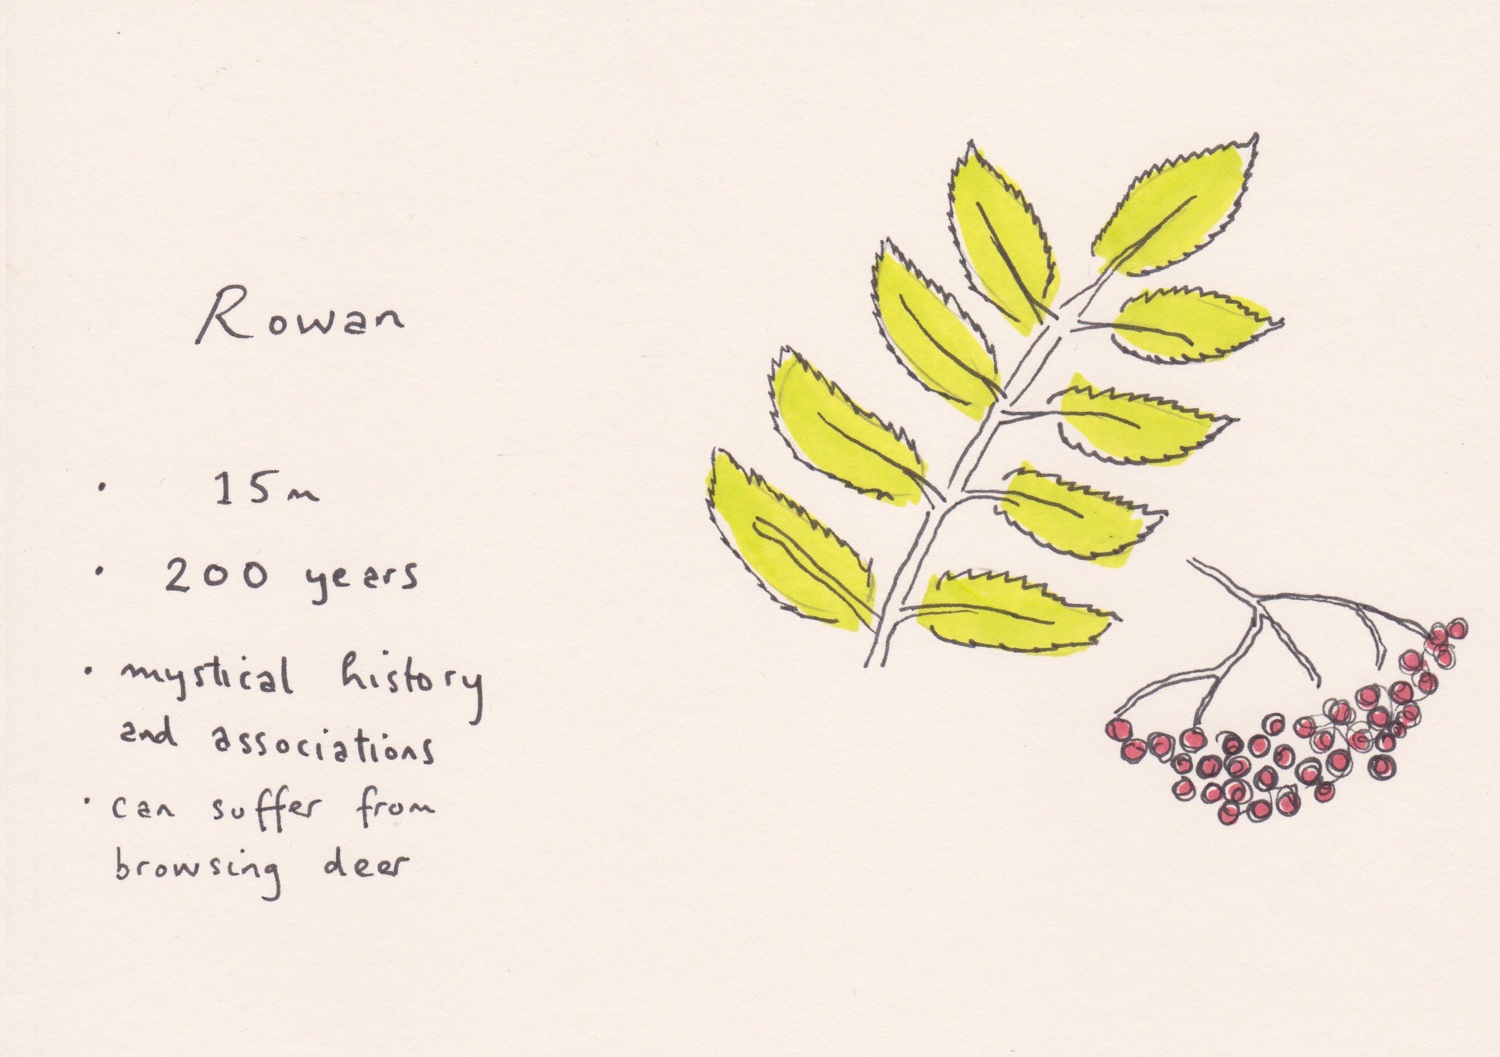 Rowan
· 15m
· 200 years
· mystical history
and associations
· can suffer from
browsing deer